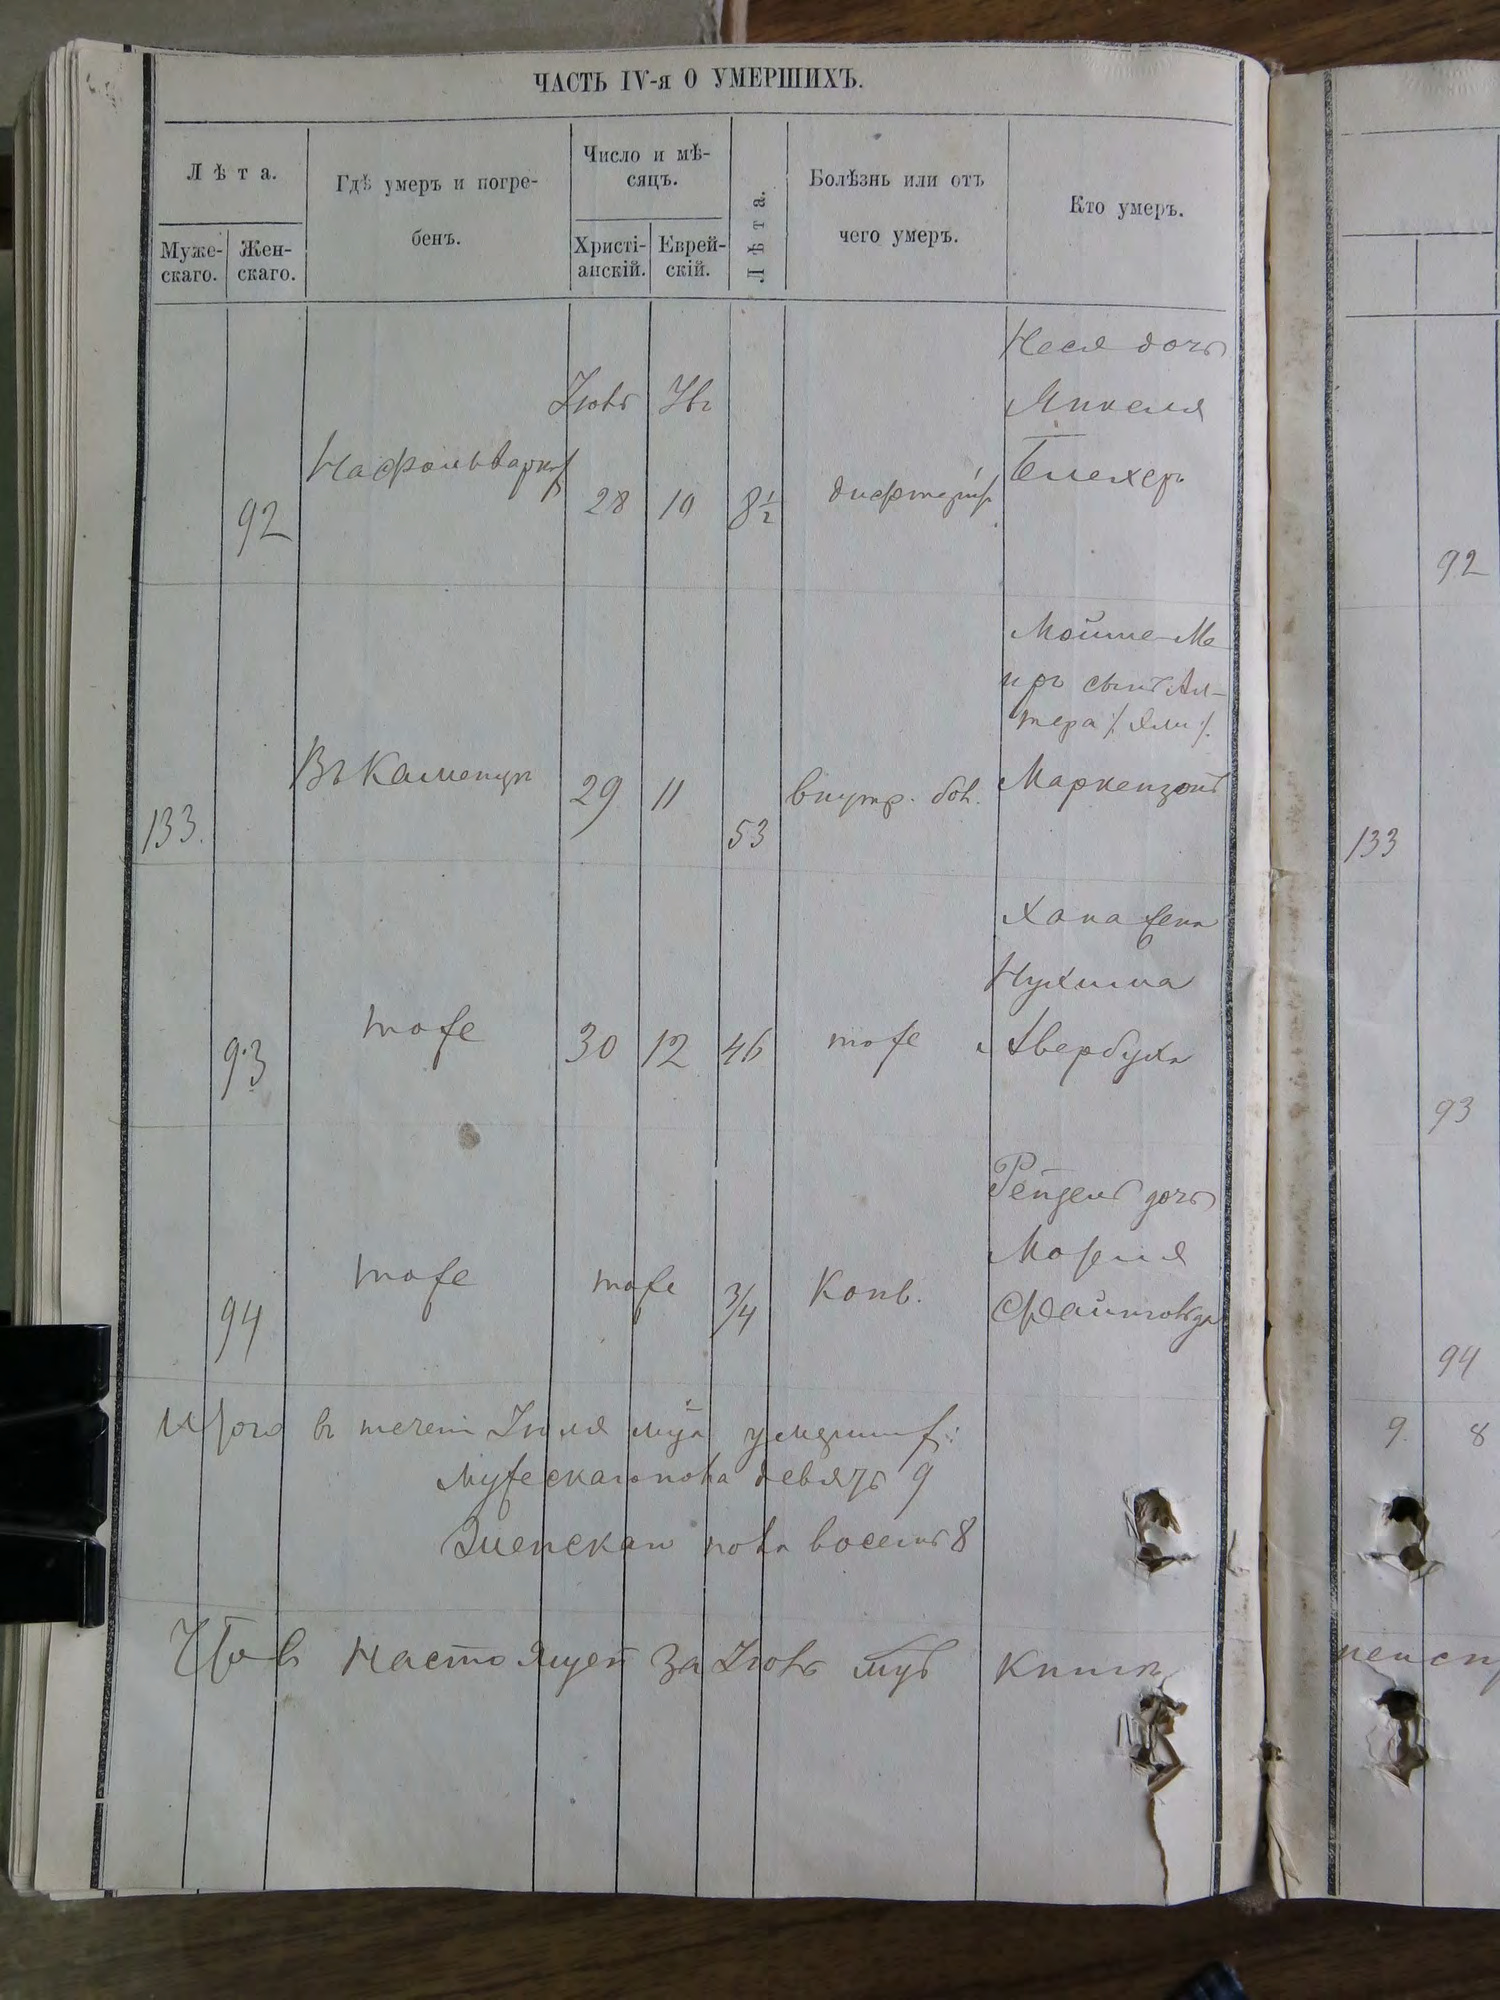 ЧАСТЬ IV-я О УМЕРШИХЪ.
Лѣта.
Мужескаго.
Женскаго.
Гдѣ умеръ и погребенъ.
Число и мѣсяцъ.
Христіанскій.
Еврейскій.
Лѣта.
Болѣзнь или отъ
чего умеръ.
Кто умеръ.
92
На фольварк
Іюль
28
10
8½
дифтерит
Неся дочь
Янкеля
Блехер
92
133.
Въ Каменцѣ
29
11
53
внутр. бол.
Мойше-Ме
иръ сынъ Ал-
тера /: Эли :/
Маркензонъ
133
93
тоже
30
12
46
тоже
Хана жена
Нухима
Авербуха
93
94
тоже
тоже
3/4
Конв.
Рейдель дочь
Мошка
94
Итого в течен Іюля умерших:
9. 8
Мужескаго пола девять 9
Женскаго пола восемь 8
Что в настоящей за Іюль книги